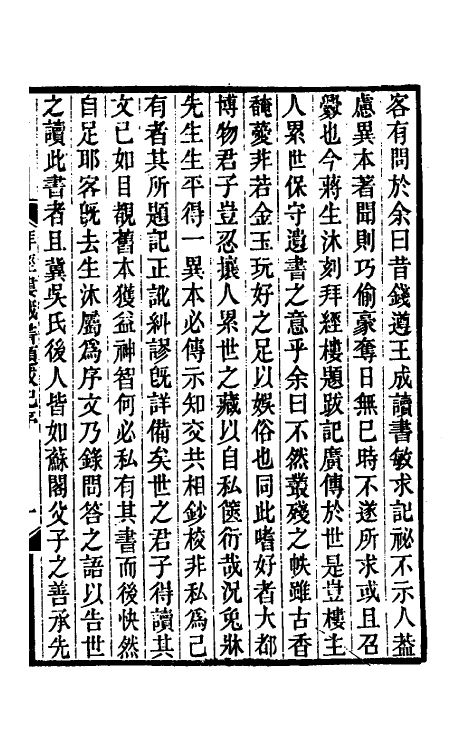 客有問於余曰昔錢遵王成讀書敏求記祕不示人蓋
慮異本著聞則巧偷豪奪日無已時不遂所求或且召
釁也今蔣生沐刻拜經樓題跋記廣傳於世是豈樓主
人累世保守遺書之意乎余曰不然叢殘之帙雖古香
馣薆非若金玉玩好之足以娛俗也同此嗜好者大都
博物君子豈忍攘人累世之藏以自私篋衍哉況兔牀
先生生平得一異本必傳示知交共相鈔校非私爲己
有者其所題記正訛糾謬旣詳備矣世之君子得讀其
文已如目覩舊本獲益神智何必私有其書而後快然
自足耶客旣去生沐屬爲序文乃錄問答之語以告世
之讀此書者且冀吳氏後人皆如蘇閣父子之善承先
拜經樓藏書題跋記序
一